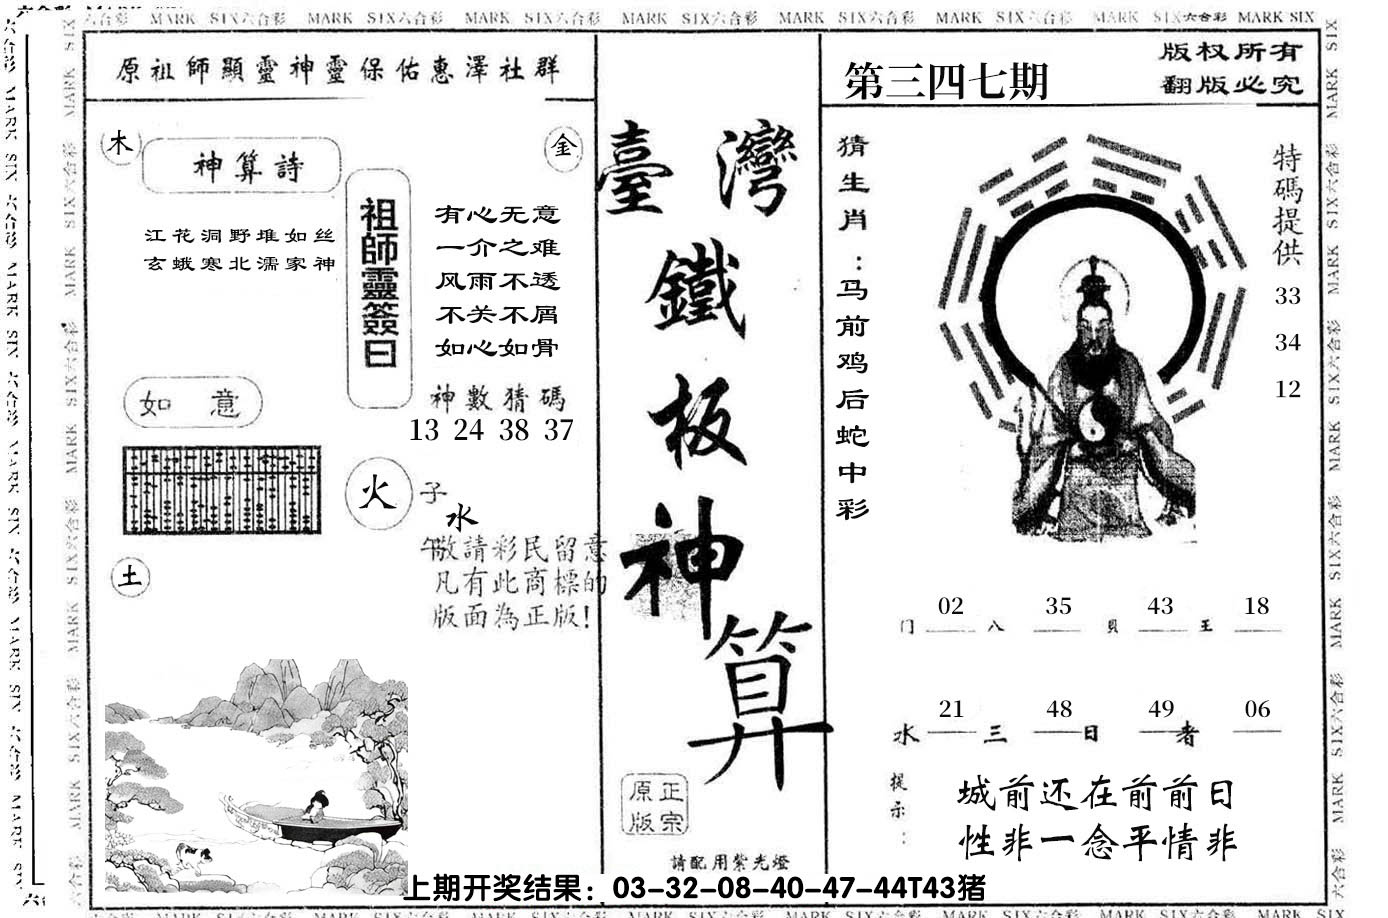 MARK SIX六合彩 MARK SIX六合彩 MARK SIX六合彩 MARK SIX六合彩 MARK SIX六合彩 MARK SIX六合彩 MARK SIX六合彩 MARK SIX
原祖師顯靈神靈保佑惠澤社群
木
金
神算詩
江花洞野堆如丝
玄蛾寒北濡家神
祖師靈簽曰
有心无意
一介之难
风雨不透
不关不屑
如心如骨
神數猜碼
13 24 38 37
如 意
火
子
水
午
土
敬請彩民留意
凡有此商標的
版面為正版!
臺灣
鐵
板
神
算
正宗
原版
請配用紫光燈
第三四七期
版权所有
翻版必究
猜生肖:马前鸡后蛇中彩
特碼提供
33
34
12
门 02 八 35 貝 43 王 18
水 21 三 48 日 49 者 06
提示:
城前还在前前日
性非一念平情非
上期开奖结果：03-32-08-40-47-44T43猪